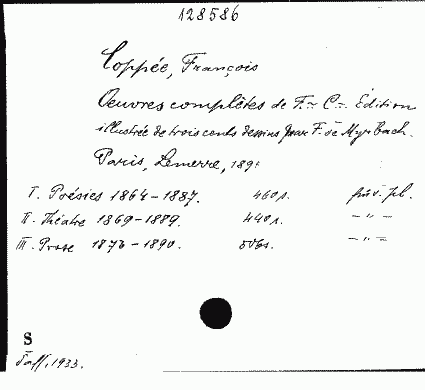 128586
Coppée, François
Oeuvres complètes de F. C. Édition
illustrée de trois cents dessins par F. de Myrbach.
Paris, Lemerre, 189
I. Poésies 1864-1887. 460 s. pův. pl.
II. Théatre 1869-1889. 440 s. - " -
III. Prose 1873-1890. 506 s. - " -
S
1933.